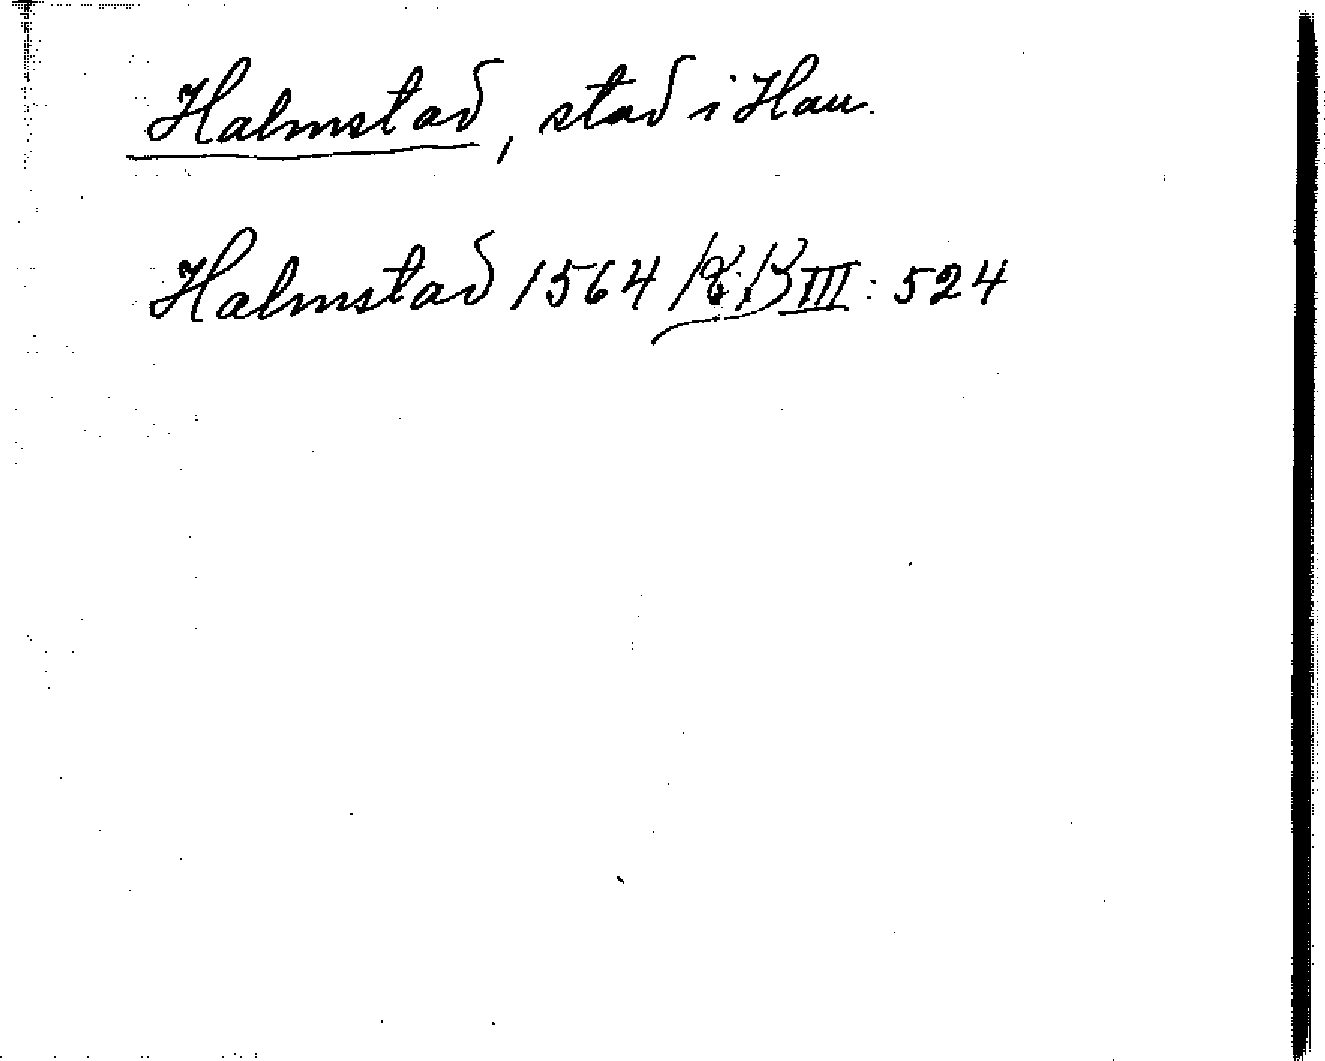 Halmstad, stad i Hall.
Halmstad 1564 III: 524